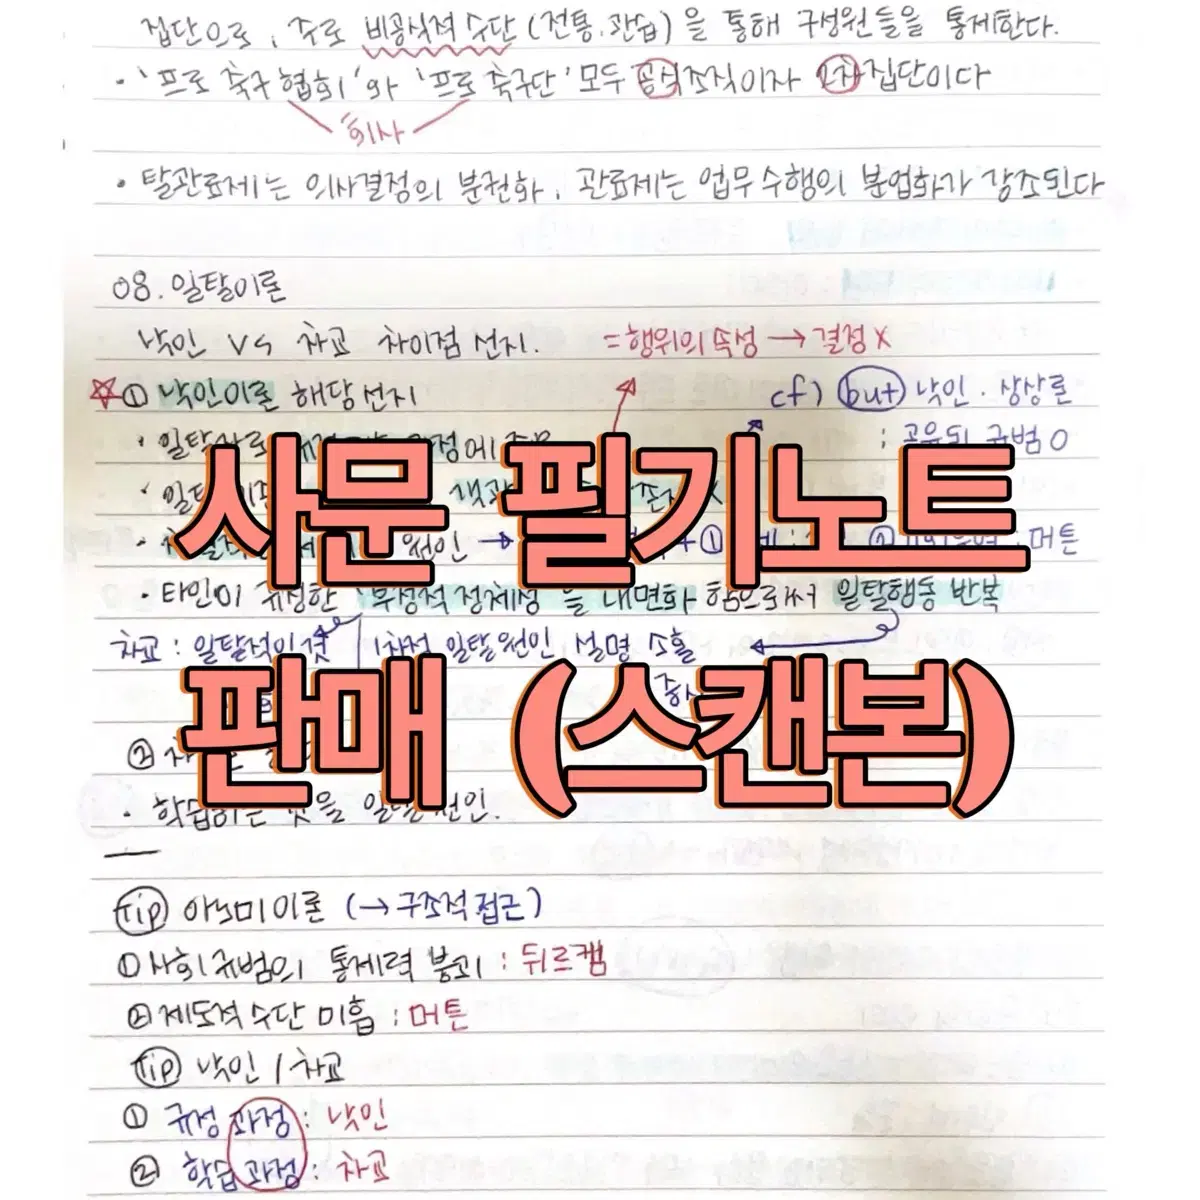 집단으로, 주로 비공식적 수단(전통.관습)을 통해 구성원들을 통제한다.
· '프로 축구 협회'와 '프로 축구단' 모두 공식조직이자 2차 집단이다
회사
· 탈관료제는 의사결정의 분권화, 관료제는 업무수행의 분업화가 강조된다
08. 일탈이론
낙인 VS 차교 차이점 선지.
=행위의 속성 → 결정 X
☆ ① 낙인이론 해당선지
cf) but 낙인·상상론
: 공유된 규범 O
· 일탈
사문 필기노트
· 일탈
X
원인 →
: 머튼
· 타인이 규정한 부정적 정체성을 내면화 함으로써 일탈행동 반복
차교 : 일탈적인 것
1차적 일탈 원인 설명 소홀
판매 (스캔본)
②
· 학습하는 것을 일탈 원인.
tip 아노미이론 (→구조적 접근)
① 사회규범의 통제력 붕괴 : 뒤르켐
② 제도적 수단 미흡 : 머튼
tip 낙인 / 차교
① 규정 과정 : 낙인
② 학습 과정 : 차교